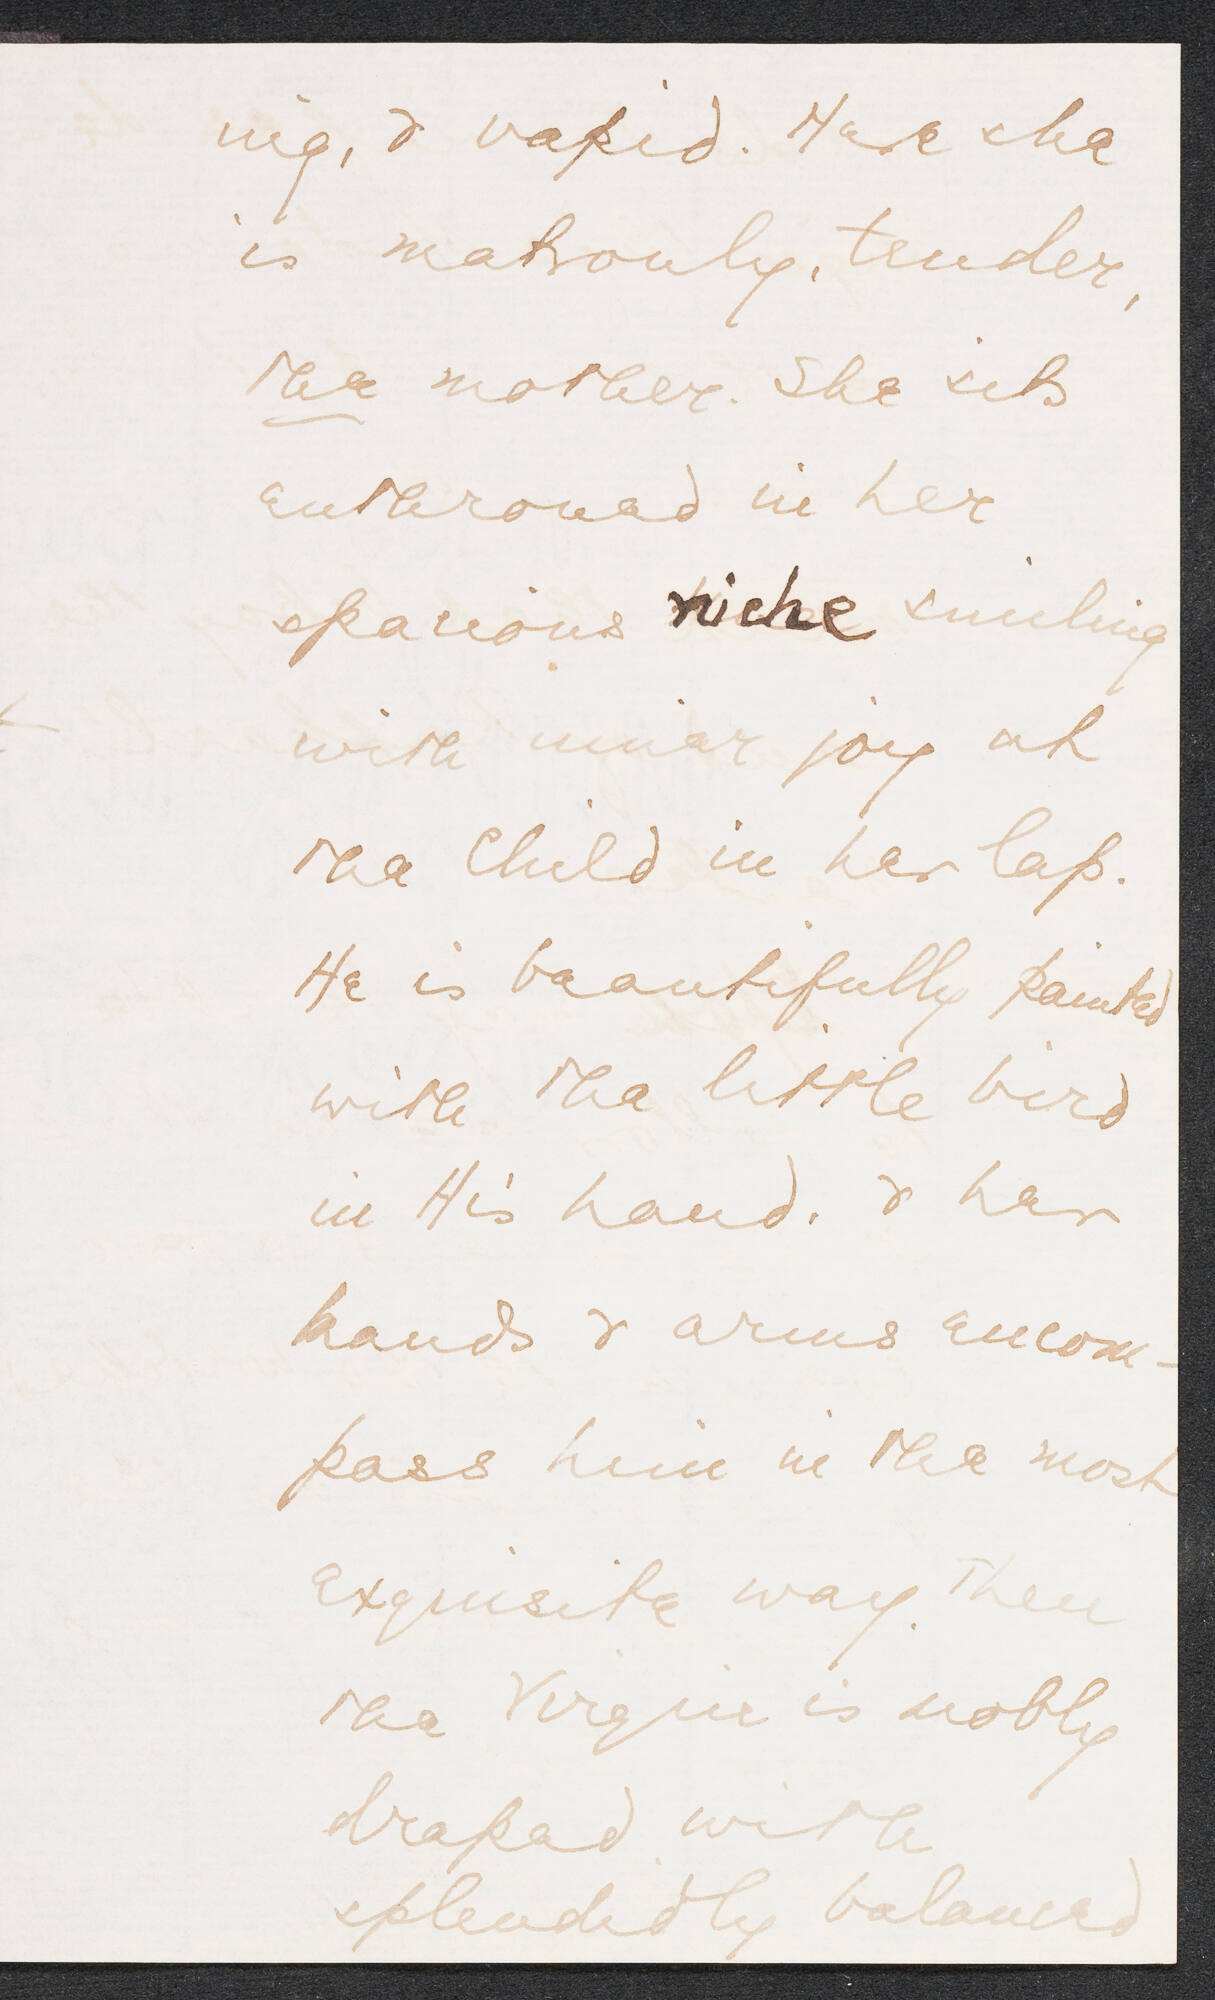 ing, & vapid. Here she
is matronly, tender,
the mother. She sits
enthroned in her
spacious niche smiling
with inner joy at
the Child in her lap.
He is beautifully painted
with the little bird
in His hand. & her
hands & arms encom-
pass him in the most
exquisite way. Then
the Virgin is nobly
draped with
splendidly balanced